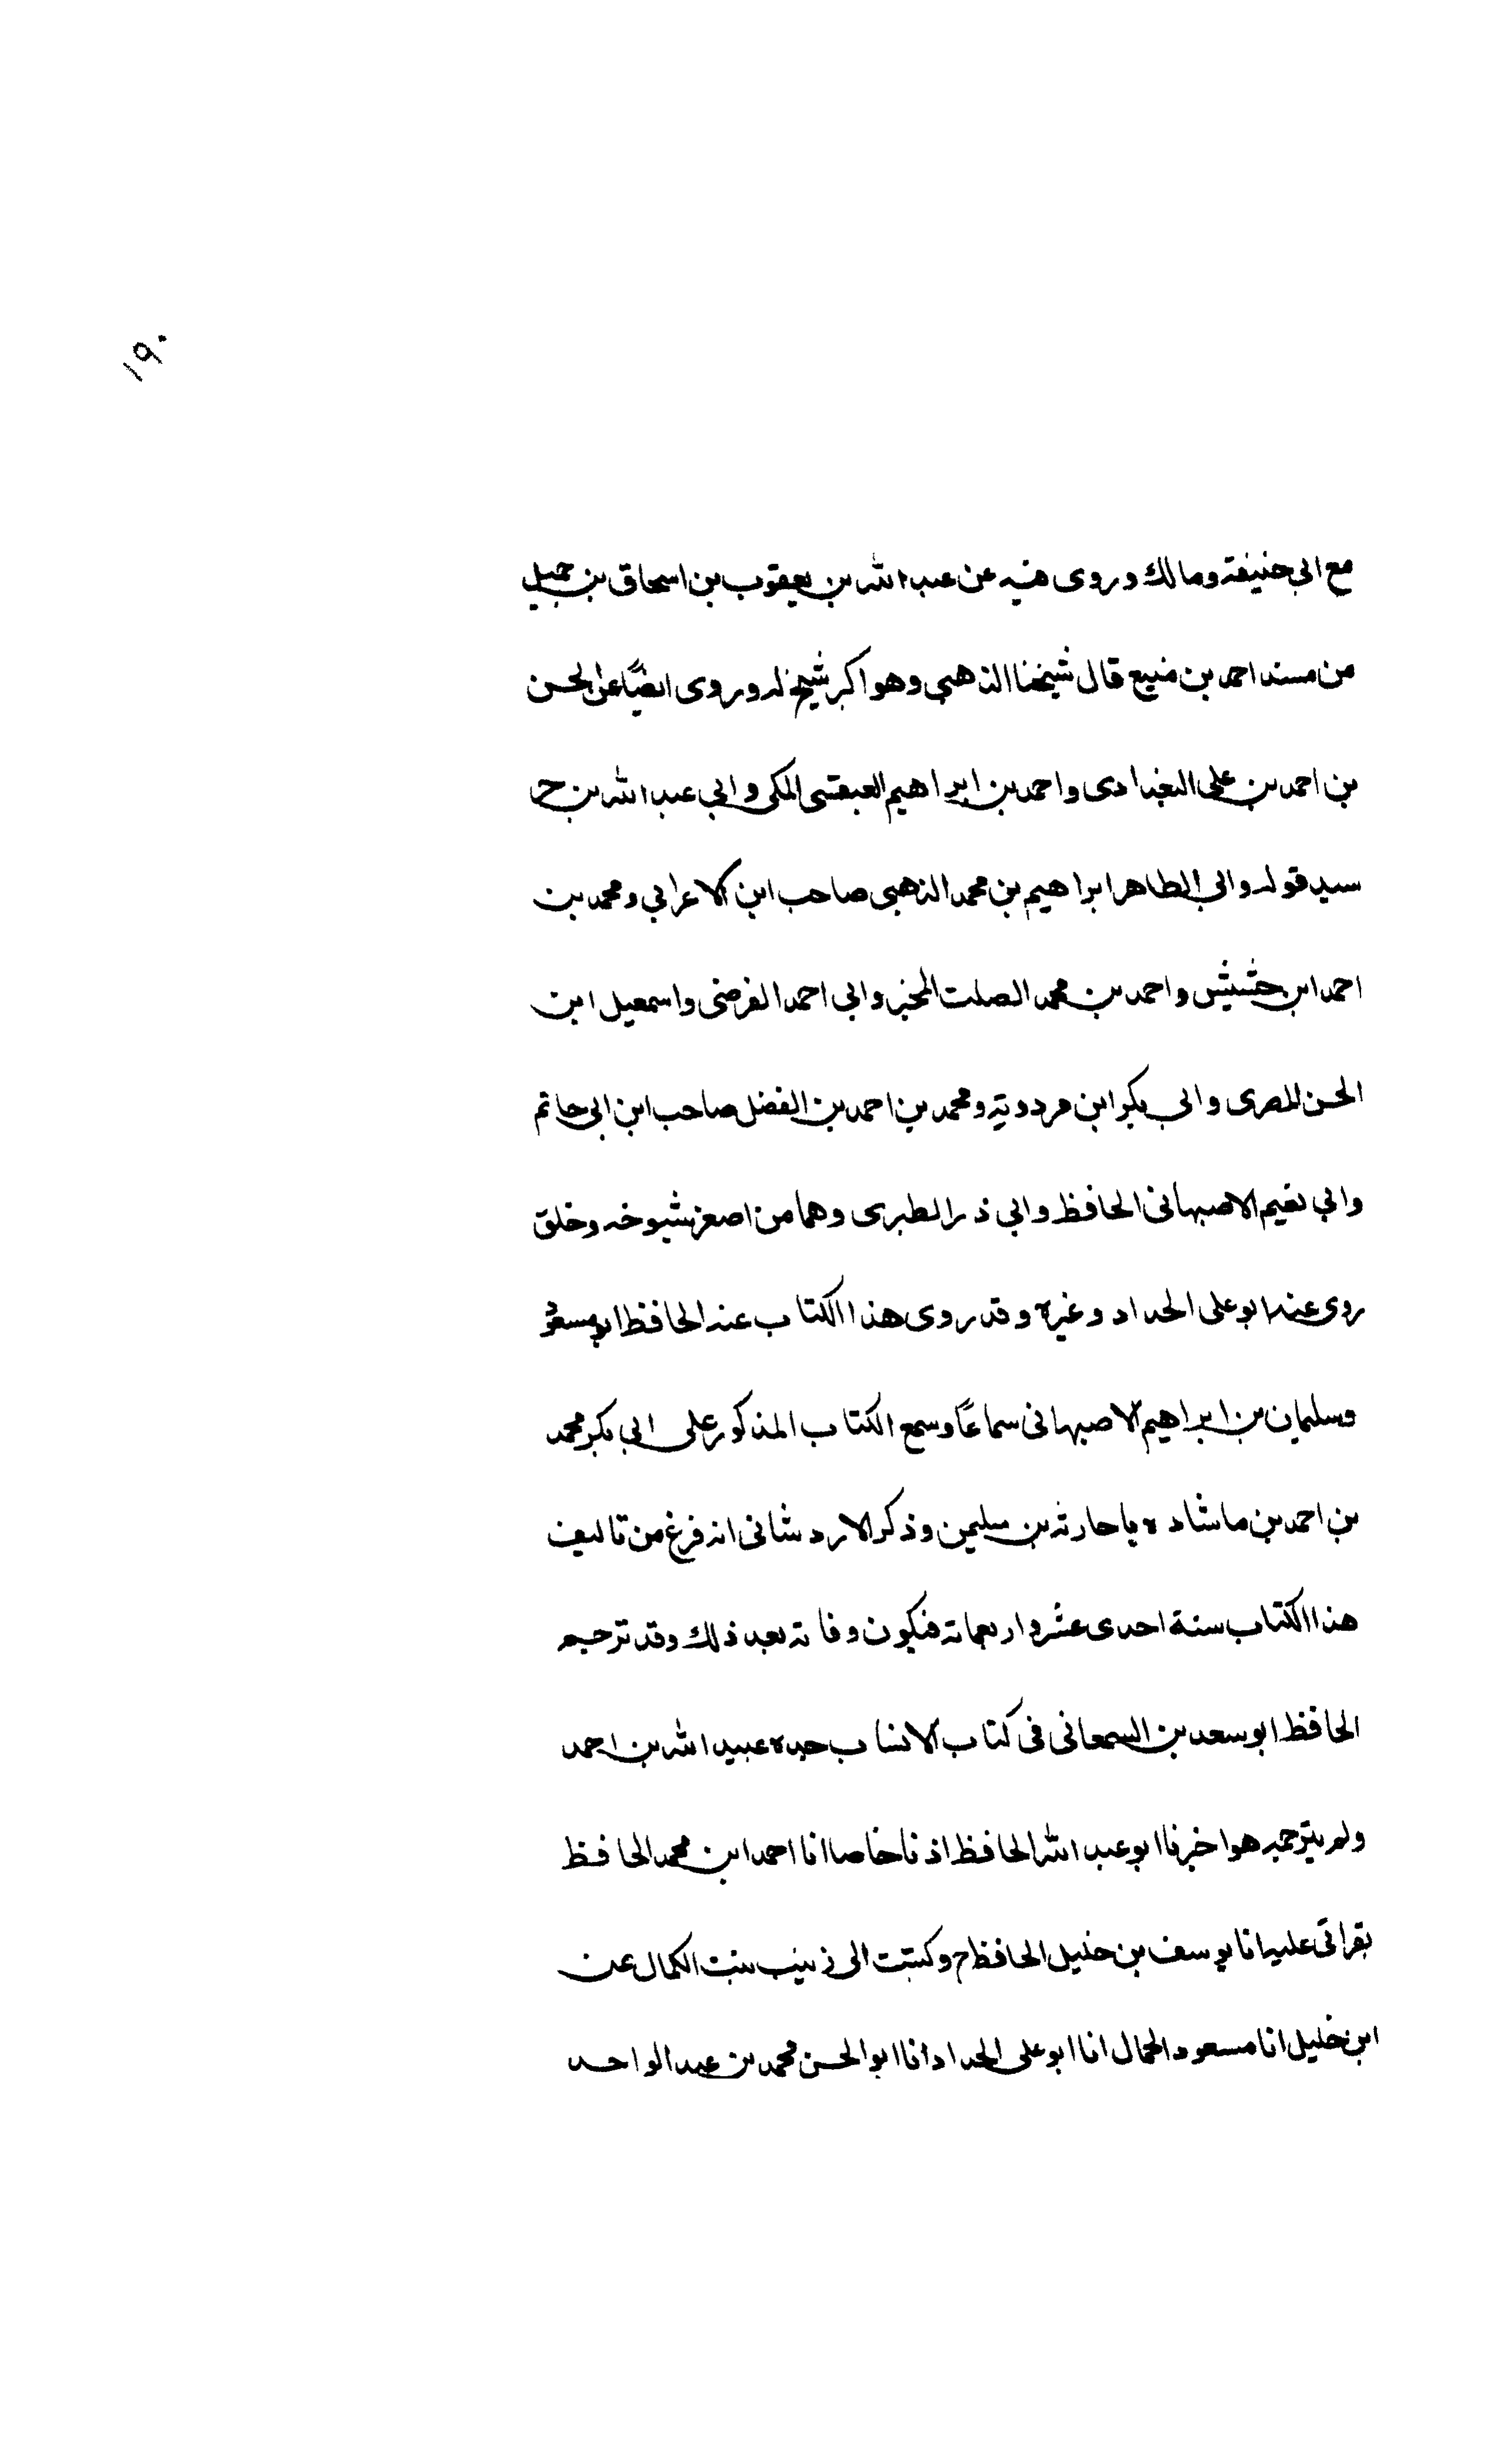 ١٩٠
مع ابي حنيفة ومالك وروى فيه عن عبد الله بن يعقوب بن اسحاق بن جميل
من مسند احمد بن منيع قال شيخنا الذهبي وهو اكبر شيخ له وروى ايضًا عن الحسن
بن احمد بن علي البغدادى واحمد بن ابراهيم العبقسى المكى وابي عبد الله بن خر
سيد قوله وابي الطاهر ابراهيم بن محمد الذهبي صاحب ابن الاعرابي ومحمد بن
احمد ابن حشيش واحمد بن محمد الصلت المخبر وابي احمد الفرضى واسمعيل ابن
الحسن المصرى وابي بكر ابن مردويه ومحمد بن احمد بن الفضل صاحب ابن ابي حاتم
وابي نعيم الاصبهانى الحافظ وابي ذر الطبرى وهما من اصغر شيوخه وخلق
روى عنه ابو على الحداد وغيره وقد روى هذا الكتاب عنه الحافظ ابو مسعود
وسليمان بن ابراهيم الاصبهانى سماعًا وسمع الكتاب المذكور على ابي بكر محمد
بن احمد بن ماشاده يا حارثه بن سليمن وذكر الاردشانى انه فرغ من تاليف
هذا الكتاب سنة احدى عشر واربعماته فيكون وفاته بعد ذلك وقد ترجم
الحافظ ابو سعد بن السمعانى فى كتاب الانساب جده عبيد الله بن احمد
ولم يترجمه هو اخبرنا ابو عبد الله الحافظ اذنا خاصا انا احمد ابن محمد الحافظ
بقراتى عليه انا يوسف بن خليل الحافظ ح وكتبت الى زينب بنت الكمال عن
ابن خليل انا مسعود الجمال انا ابو على الحداد انا ابو الحسن محمد بن عبد الواحد